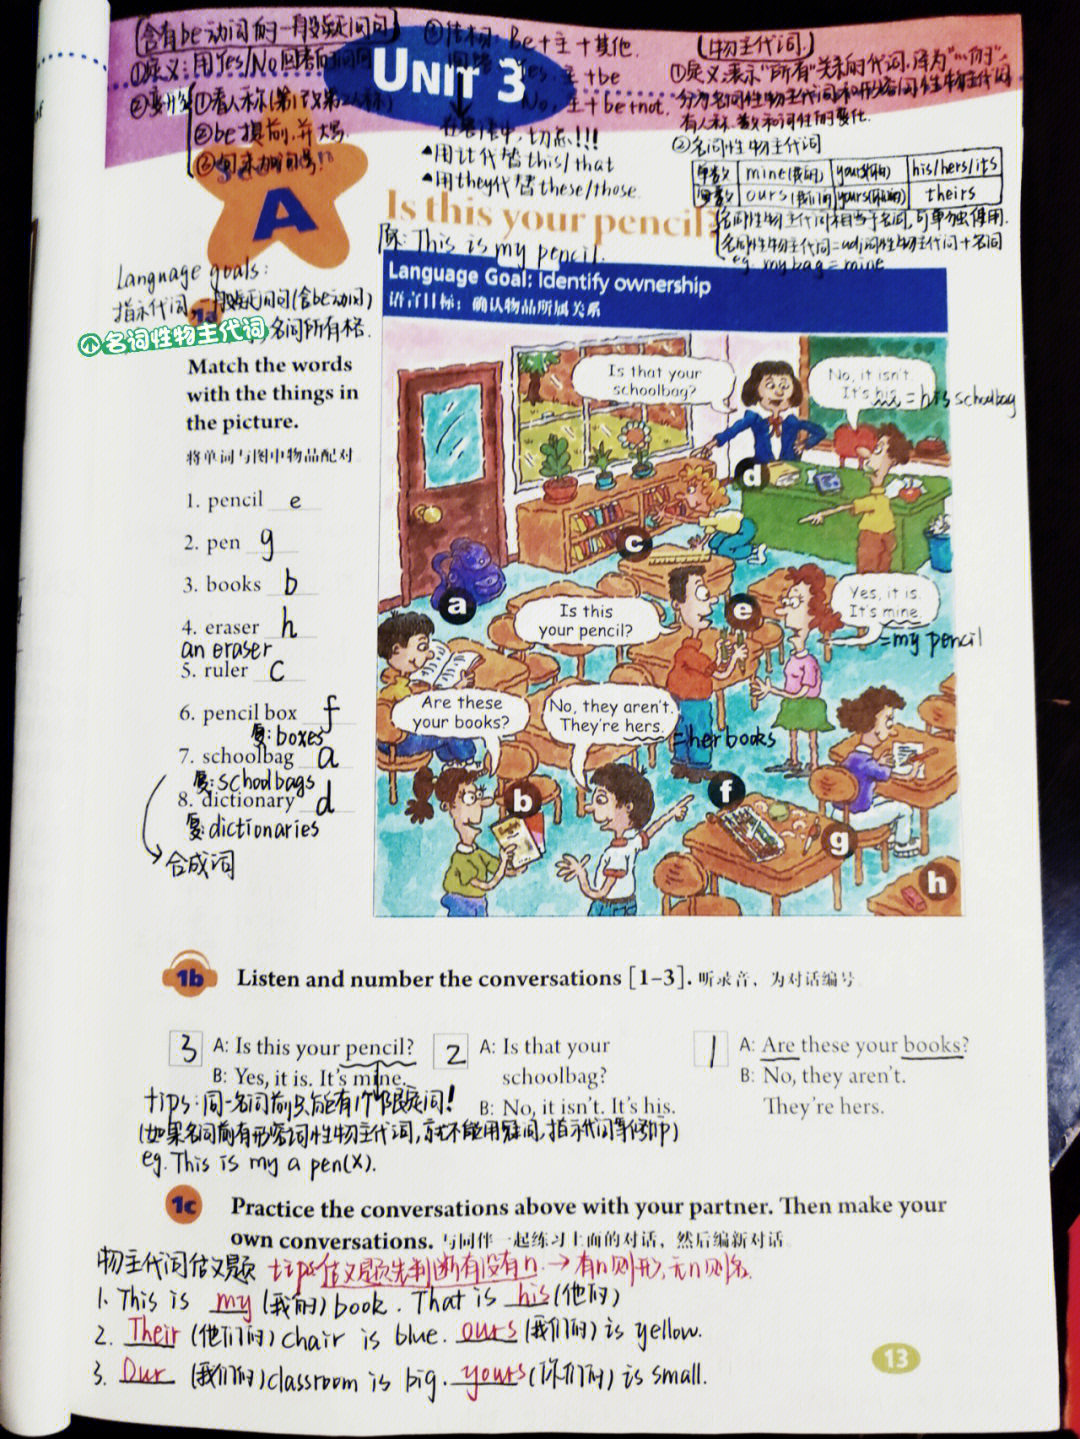 (含有be动词的一般疑问句)
①定义：用Yes/No回答的问句
②变形
①看人称(第一改第二人称)
②be提前,并大写
③句末加问号"?"
UNIT 3
③结构: Be+主+其他
Yes, 主+be
No, 主+be+not.
在答语中,切忌!!!
▲用it代替this/that
▲用they代替these/those.
(物主代词.)
①定义:表示"所有"关系的代词,译为"…的"
分为名词性物主代词和形容词性物主代词
有人称、数和词性的变化.
②名词性物主代词
单数 mine(我的) yours(你的) his/hers/its
复数 ours(我们的) yours(你们的) theirs
名词性物主代词相当于名词,可单独使用.
名词性物主代词=adj词性物主代词+名词
eg. my bag = mine
A
Is this your pencil?
原: This is my pencil.
Language goals:
指示代词,一般疑问句(含be动词)
名词性物主代词
,名词所有格.
1a
Match the words
with the things in
the picture.
将单词与图中物品配对
1. pencil e
2. pen g
3. books b
4. eraser h
an eraser
5. ruler c
6. pencil box f
复: boxes
7. schoolbag a
复: schoolbags
8. dictionary d
复: dictionaries
合成词
Language Goal: Identify ownership
语言目标：确认物品所属关系
Is that your
schoolbag?
No, it isn't.
It's his.
=his schoolbag
a
b
c
d
e
f
g
h
Is this
your pencil?
Yes, it is.
It's mine.
=my pencil
Are these
your books?
No, they aren't.
They're hers.
=her books
1b Listen and number the conversations [1–3]. 听录音，为对话编号
3 A: Is this your pencil?
B: Yes, it is. It's mine.
2 A: Is that your
schoolbag?
B: No, it isn't. It's his.
1 A: Are these your books?
B: No, they aren't.
They're hers.
tips:同一名词前只能有1个限定词!
(如果名词前有形容词性物主代词,就不能用冠词,指示代词等修饰)
eg. This is my a pen(×).
1c Practice the conversations above with your partner. Then make your
own conversations. 与同伴一起练习上面的对话，然后编新对话
物主代词估义题 tips:估义题先判断有没有n. → 有n则形,无n则名.
1. This is my (我的) book. That is his (他的)
2. Their (他们的) chair is blue. ours (我们的) is yellow.
3. Our (我们的) classroom is big. yours (你们的) is small.
13